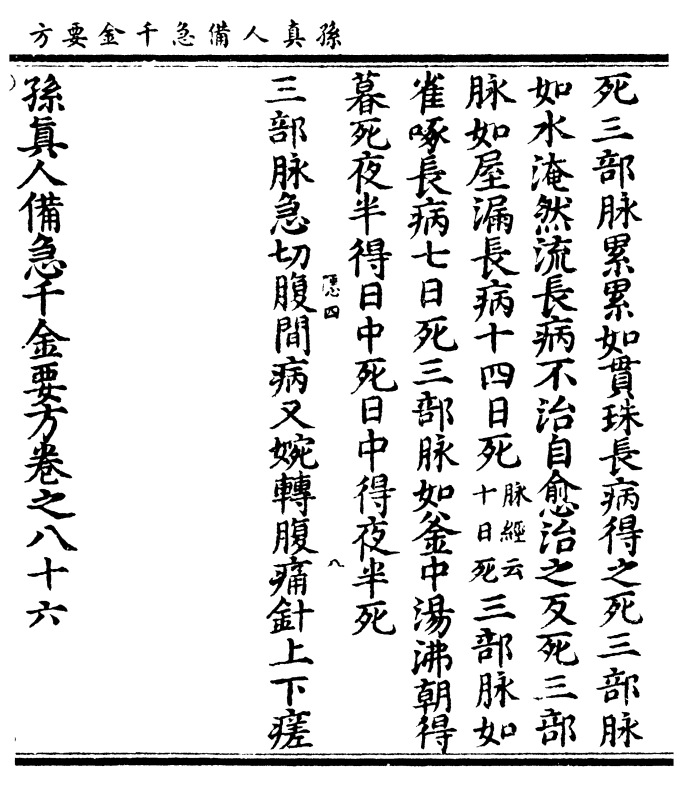 孫真人備急千金要方
死三部脉累累如貫珠長病得之死三部脉
如水淹然流長病不治自愈治之反死三部
脉如屋漏長病十四日死脉經云十日死三部脉如
雀啄長病七日死三部脉如釜中湯沸朝得
暮死夜半得日中死日中得夜半死
三部脉急切腹間病又婉轉腹痛針上下瘥
四
八
孫真人備急千金要方卷之八十六